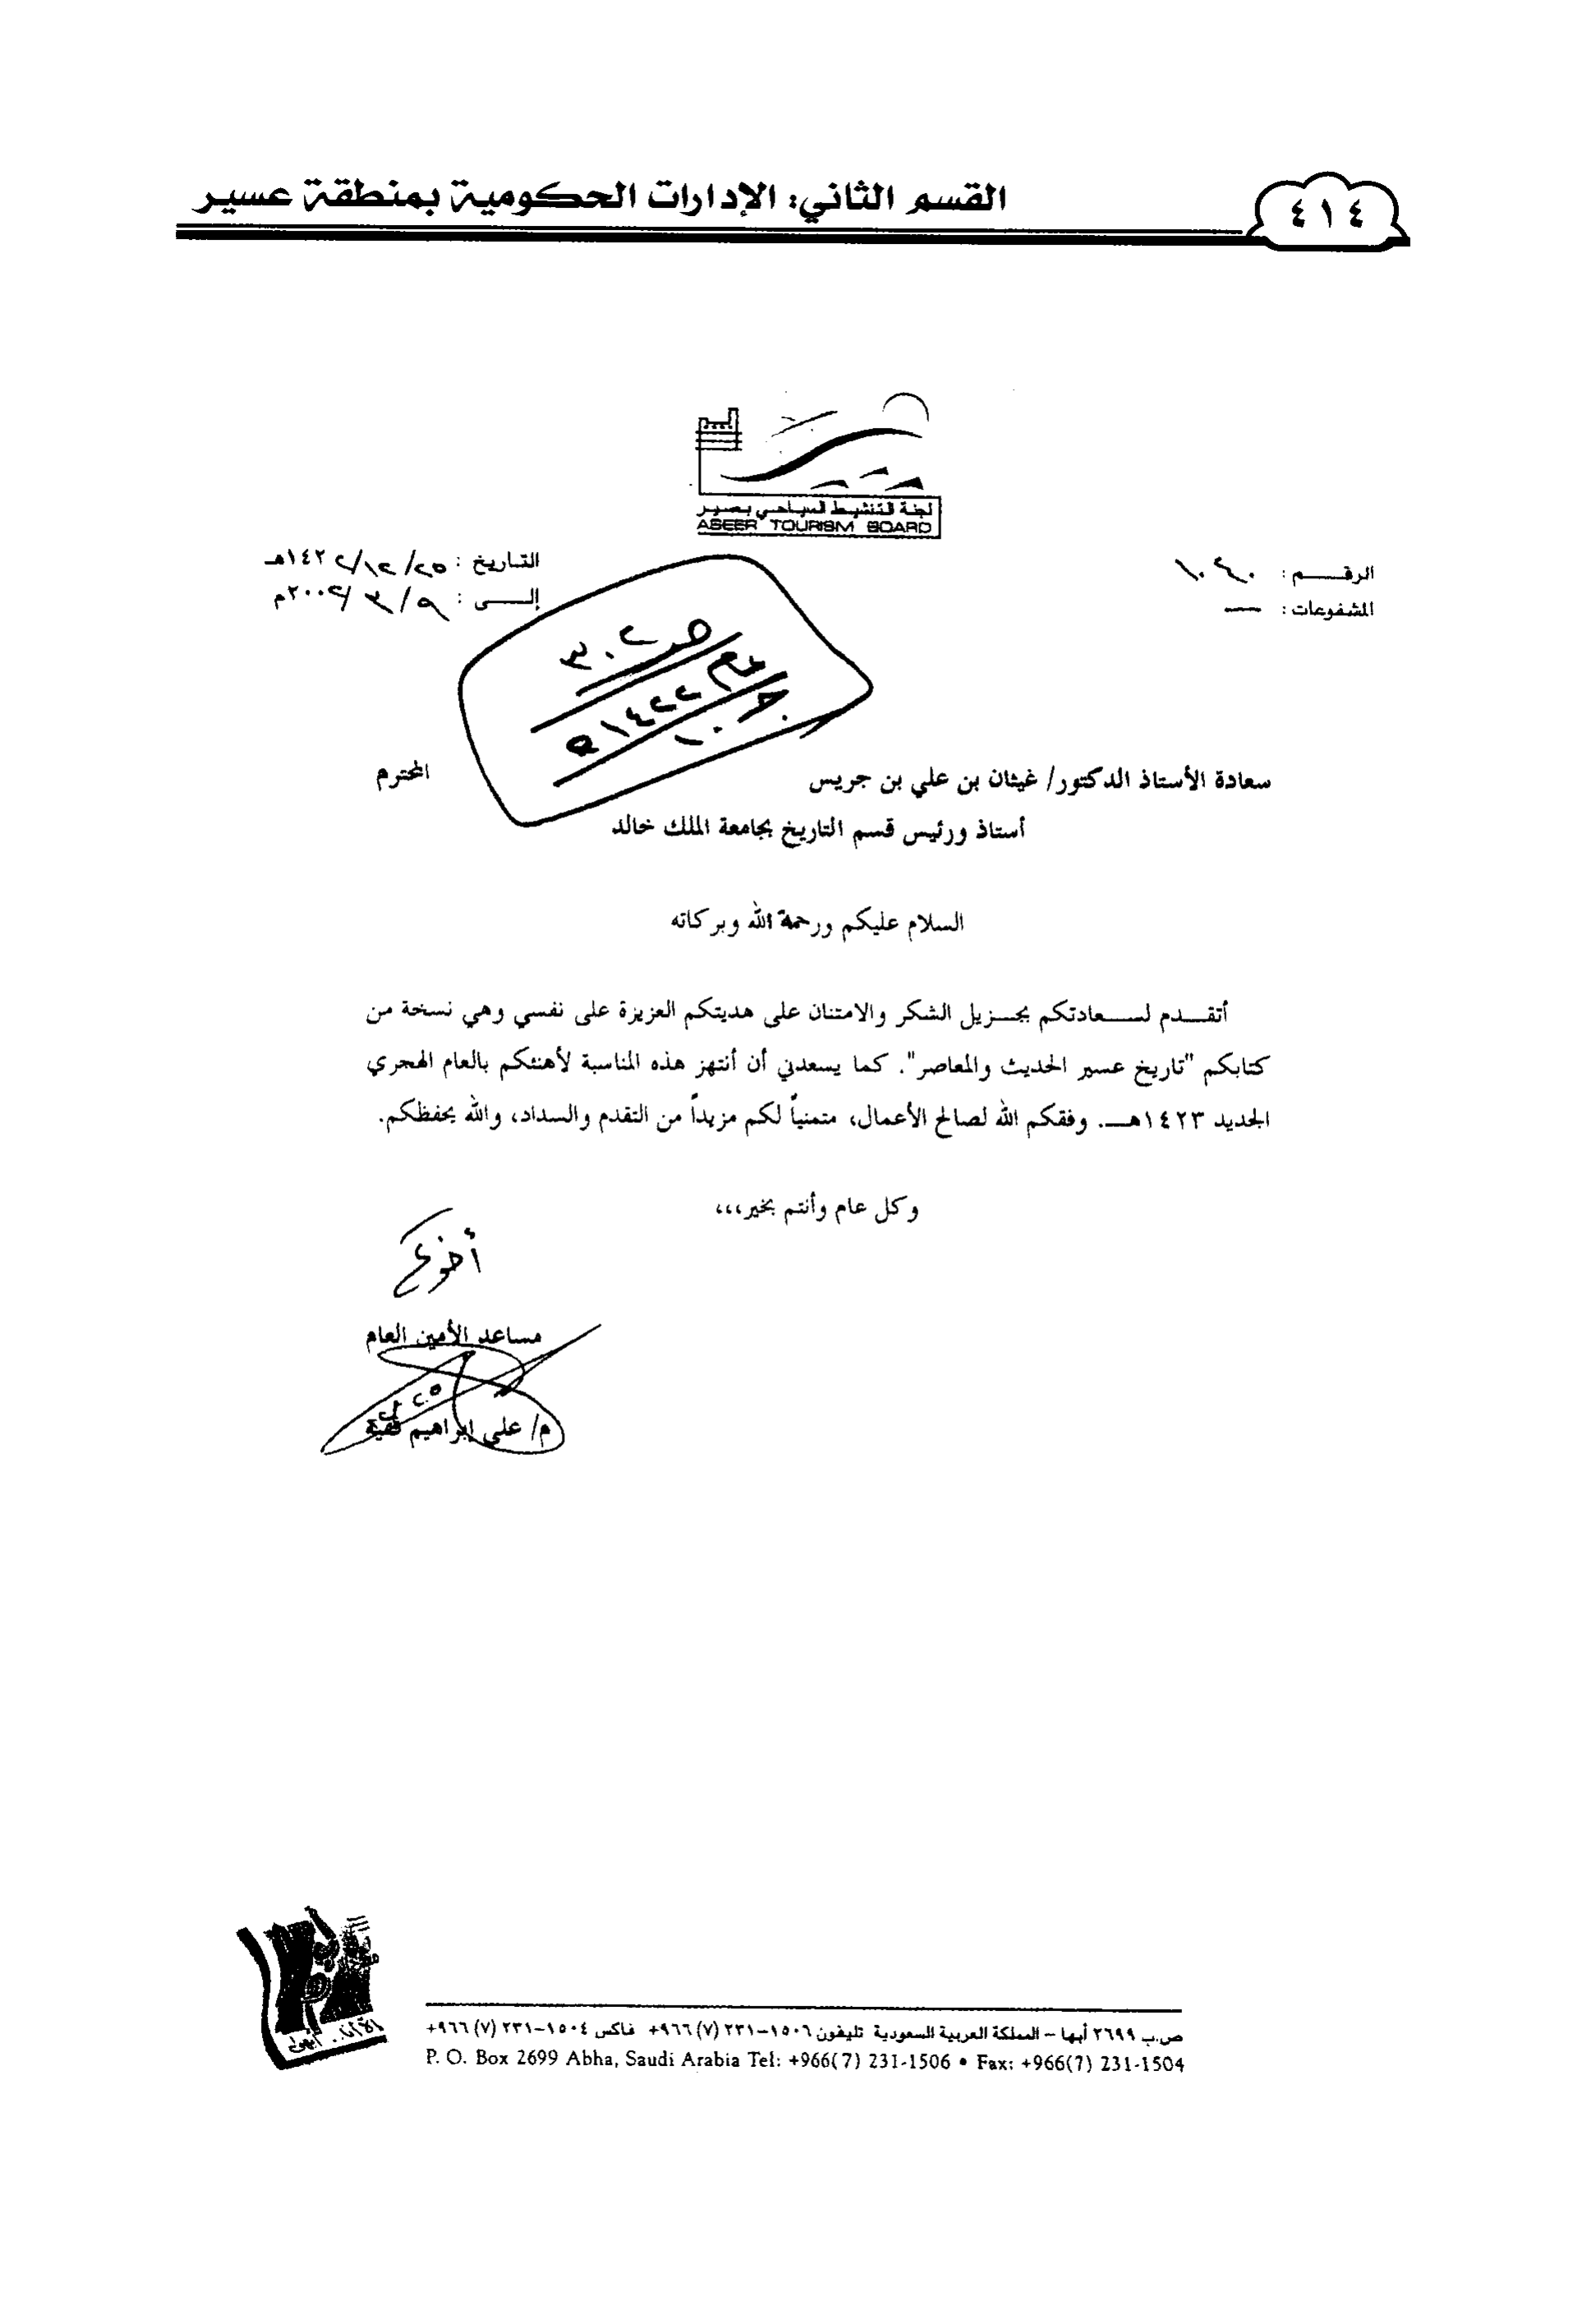 القسم الثاني: الإدارات الحكومية بمنطقة عسير
٤١٤
لجنة التنشيط السياحي بعسير
ASEER TOURISM BOARD
الرقــــم :
المشفوعات : —
التاريخ : ٢٥/١٢/١٤٢٢هـ
إلــــى : ٩/٣/٢٠٠٢م
ص ٣٠٢
١٤٢٢هـ
سعادة الأستاذ الدكتور/ غيثان بن علي بن جريس المحترم
أستاذ ورئيس قسم التاريخ بجامعة الملك خالد
السلام عليكم ورحمة الله وبركاته
أتقــدم لســـعادتكم بجــزيل الشكر والامتنان على هديتكم العزيزة على نفسي وهي نسخة من
كتابكم "تاريخ عسير الحديث والمعاصر". كما يسعدني أن أنتهز هذه المناسبة لأهنئكم بالعام الهجري
الجديد ١٤٢٣هــ. وفقكم الله لصالح الأعمال، متمنياً لكم مزيداً من التقدم والسداد، والله يحفظكم.
وكل عام وأنتم بخير،،،
أخوكم
مساعد الأمين العام
م/ علي إبراهيم فقيه
ص.ب ٢٦٩٩ أبها – المملكة العربية السعودية تليفون ١٥٠٦–٢٣١ (٧) ٩٦٦+ فاكس ١٥٠٤–٢٣١ (٧) ٩٦٦+
P. O. Box 2699 Abha, Saudi Arabia Tel: +966(7) 231-1506 • Fax: +966(7) 231-1504